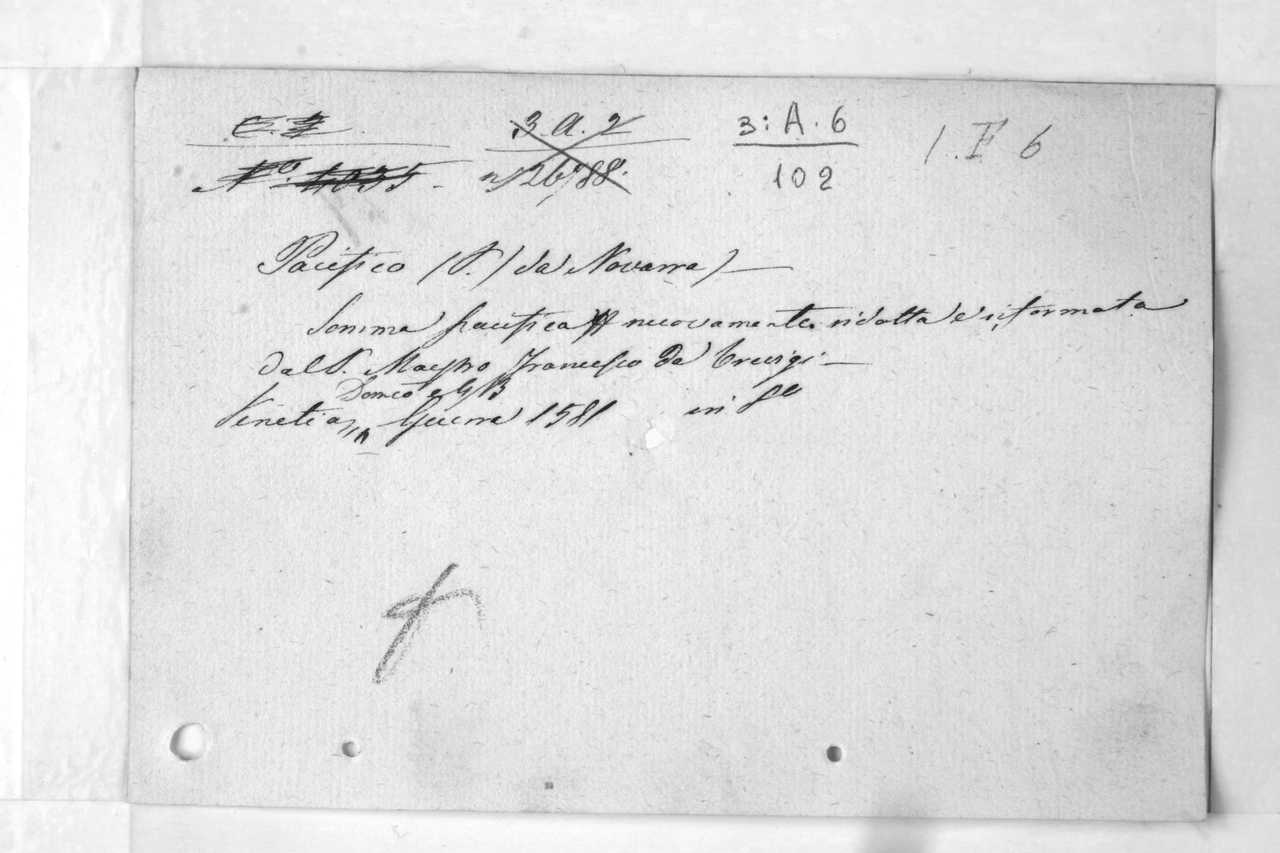 3 A. 2 3: A. 6 1. F 6
No. 4035 102
Pacifico (P.) da Novarra)
Somma pacifica nuovamente ridotta e riformata
dal P. Maestro Francesco da Trevigi
Domco e GB
Venetia, Guerra 1581 in 8o